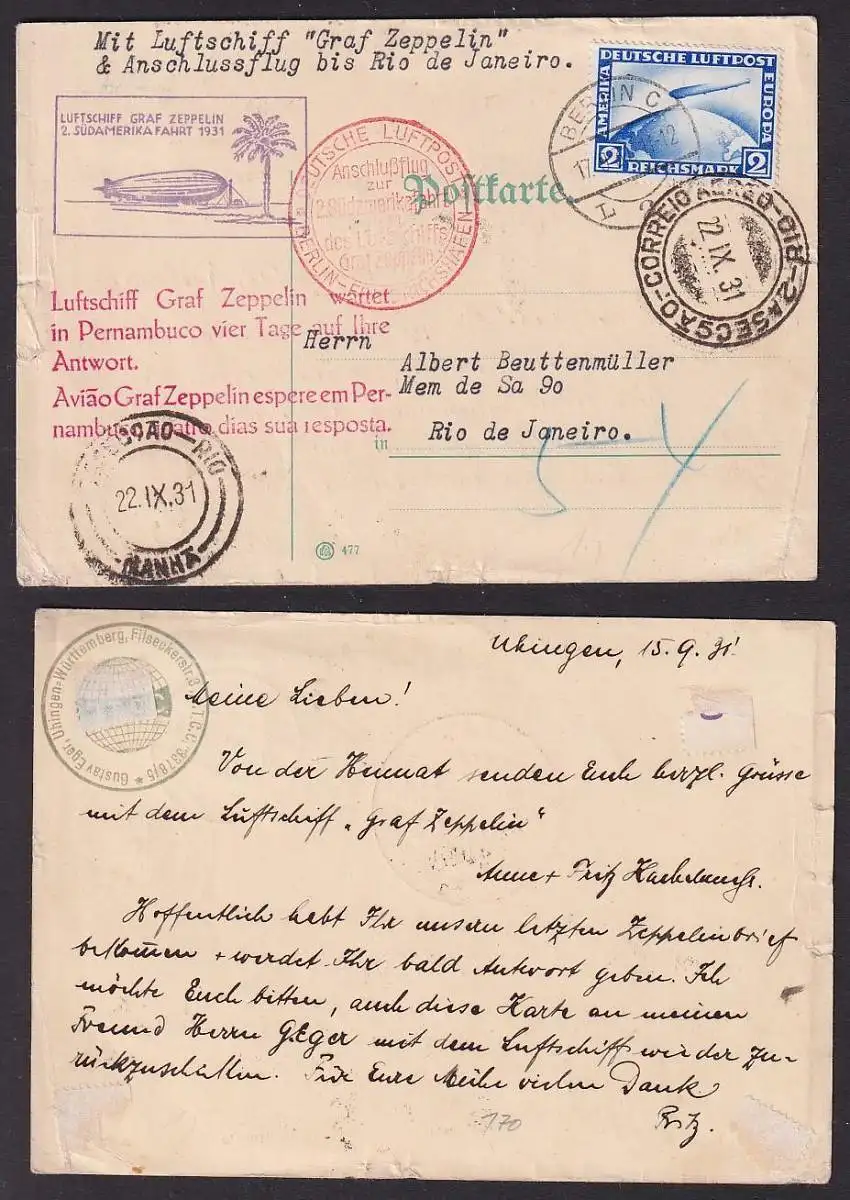 Mit Luftschiff "Graf Zeppelin"
& Anschlussflug bis Rio de Janeiro.
LUFTSCHIFF GRAF ZEPPELIN
2. SÜDAMERIKAFAHRT 1931
DEUTSCHE LUFTPOST
Anschlußflug
zur
2. Südamerikafahrt
des Luftschiffs
Graf Zeppelin
BERLIN-FRIEDRICHSHAFEN
DEUTSCHE LUFTPOST
AMERIKA
EUROPA
2 REICHSMARK 2
BERLIN C
17
12
Postkarte
2ª SECSÃO-CORREIO AEREO-RIO
22.IX.31
Luftschiff Graf Zeppelin wartet
in Pernambuco vier Tage auf Ihre
Antwort.
Avião Graf Zeppelin espere em Per-
nambuco quatro dias sua resposta.
Herrn
Albert Beuttenmüller
Mem de Sa 90
in
Rio de Janeiro.
RIO
22.IX.31
MANHÃ
477
Gustav Eger, Uhingen-Württemberg, Filseckerstr.
Uhingen, 15.9.31.
Meine Lieben!
Von der Heimat senden Euch herzl. Grüsse
mit dem Luftschiff „Graf Zeppelin"
Anne + Fritz
Hoffentlich habt Ihr unsern letzten Zeppelinbrief
bekommen + werdet Ihr bald Antwort geben. Ich
möchte Euch bitten, auch diese Karte an meinen
Freund Herrn G. Eger mit dem Luftschiff wieder zu-
rückzuschicken. Für Eure Mühe vielen Dank
Fritz.
170